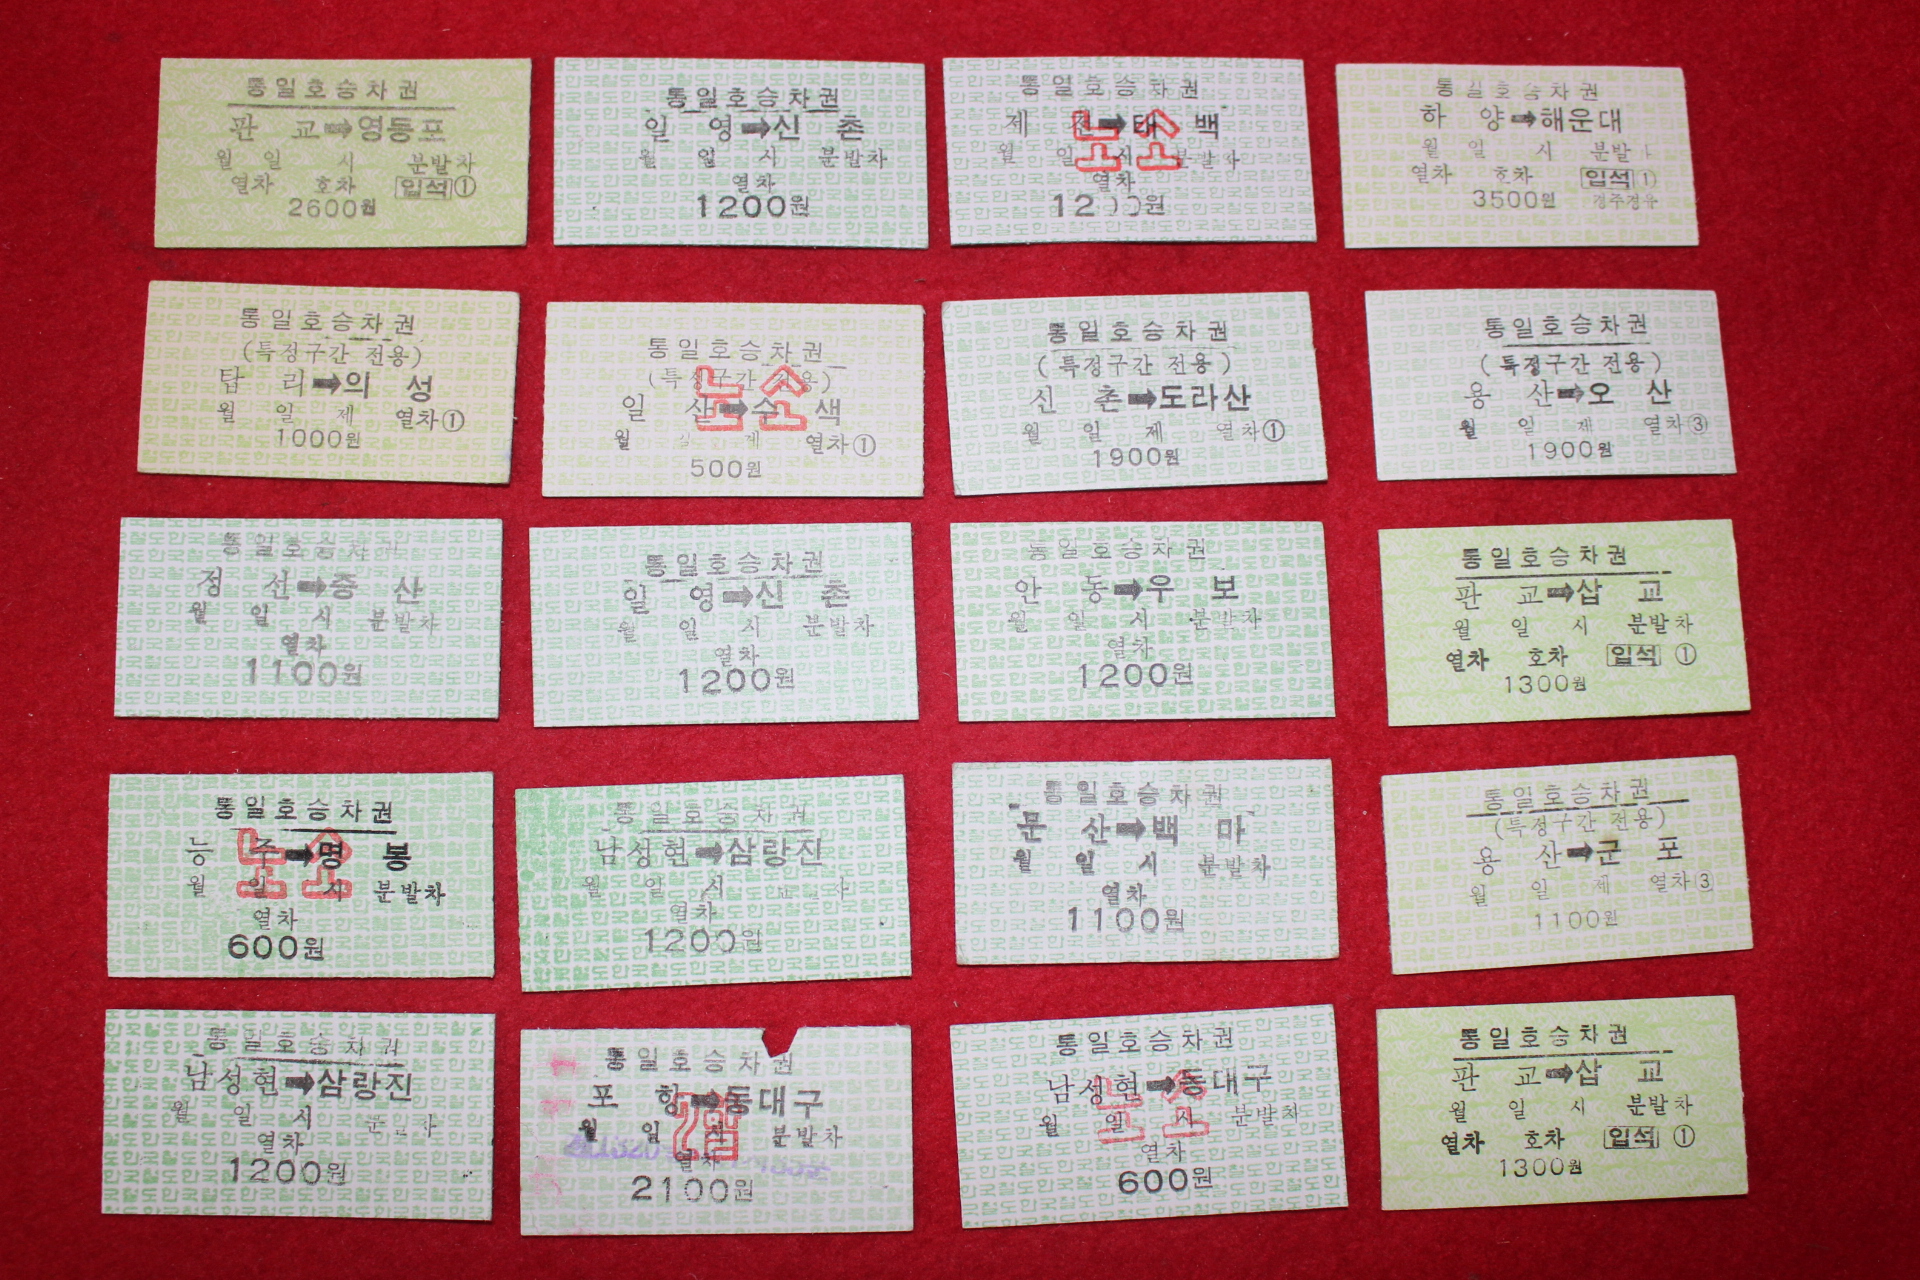 통일호승차권
판 교➡영등포
월 일 시 분발차
열차 호차 입석①
2600원
통일호승차권
일 영➡신 촌
월 일 시 분발차
열차
1200원
통일호승차권
제 천➡태 백
노소
월 일 시 분발차
열차
1200원
통일호승차권
하 양➡해운대
월 일 시 분발
열차 호차 입석①
3500원 경주경유
통일호승차권
(특정구간 전용)
탑 리➡의 성
월 일 제 열차①
1000원
통일호승차권
(특정구간 전용)
노소
일 산➡수 색
월 일 제 열차①
500원
통일호승차권
(특정구간 전용)
신 촌➡도라산
월 일 제 열차①
1900원
통일호승차권
(특정구간 전용)
용 산➡오 산
월 일 제 열차③
1900원
통일호승차권
정 선➡증 산
월 일 시 분발차
열차
1100원
통일호승차권
일 영➡신 촌
월 일 시 분발차
열차
1200원
통일호승차권
안 동➡우 보
월 일 시 분발차
열차
1200원
통일호승차권
판 교➡삽 교
월 일 시 분발차
열차 호차 입석 ①
1300원
통일호승차권
능 주➡명 봉
노소
월 일 시 분발차
열차
600원
통일호승차권
남성현➡삼랑진
월 일 시 차
열차
1200원
통일호승차권
문 산➡백 마
월 일 시 분발차
열차
1100원
통일호승차권
(특정구간 전용)
용 산➡군 포
월 일 제 열차③
1100원
통일호승차권
남성현➡삼랑진
월 일 시 분 차
열차
1200원
통일호승차권
포 항➡동대구
월 일 시 분발차
열차
2100원
통일호승차권
남성현➡동대구
노소
월 일 시 분발차
열차
600원
통일호승차권
판 교➡삽 교
월 일 시 분발차
열차 호차 입석 ①
1300원